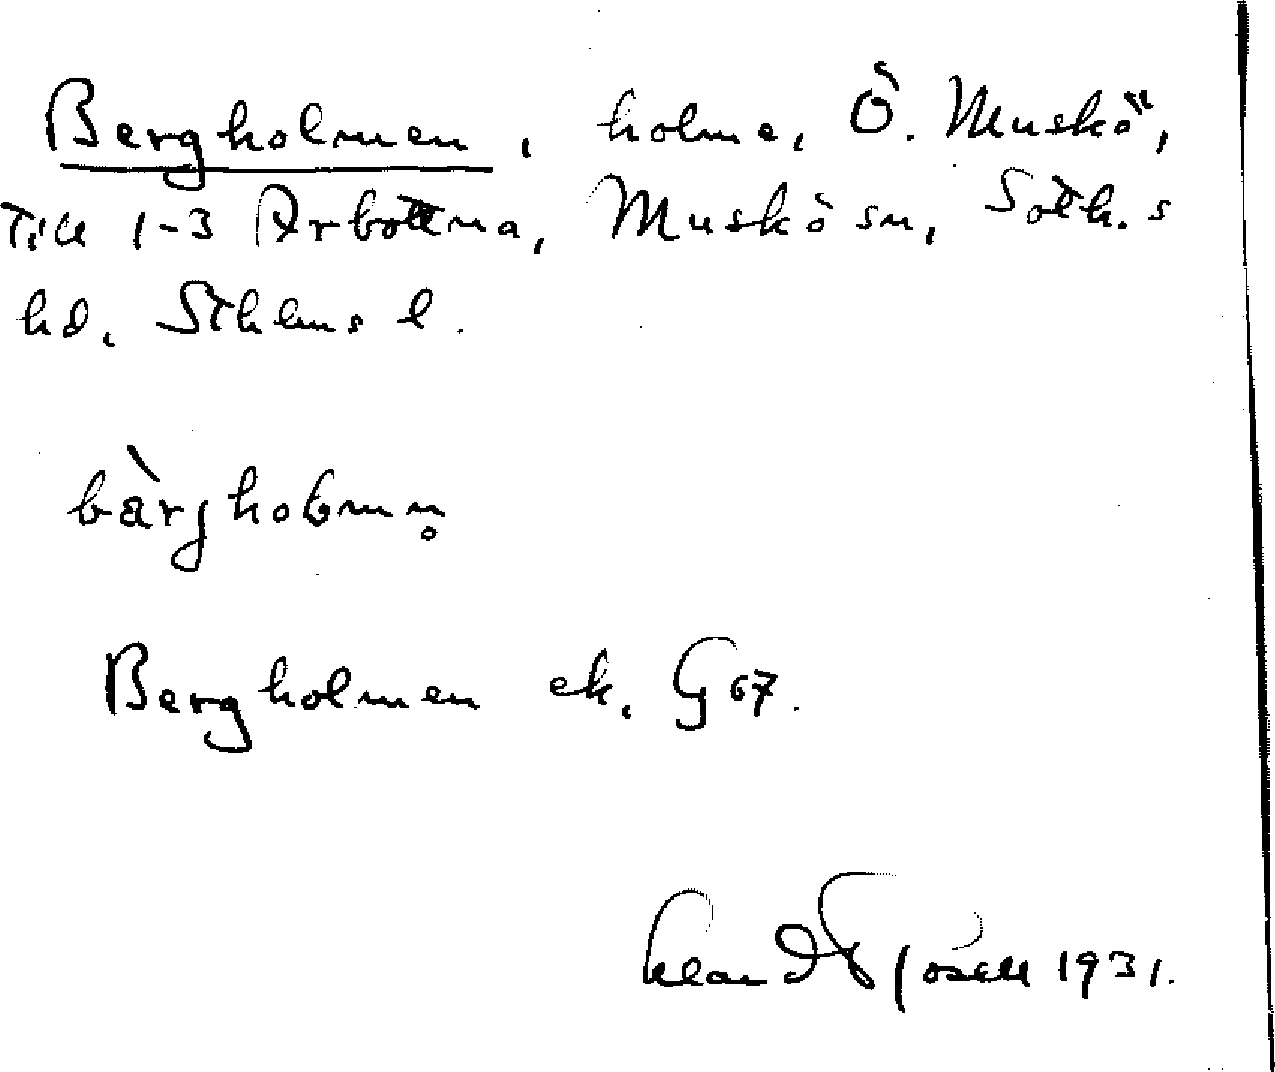 Bergholmen, holme, Ö. Muskö,
Till 1-3 Arbottna, Muskö sn, Soth.s
hd. Sthlms l.
bàrjholmn̥
Bergholmen ek. G 67.
1931.